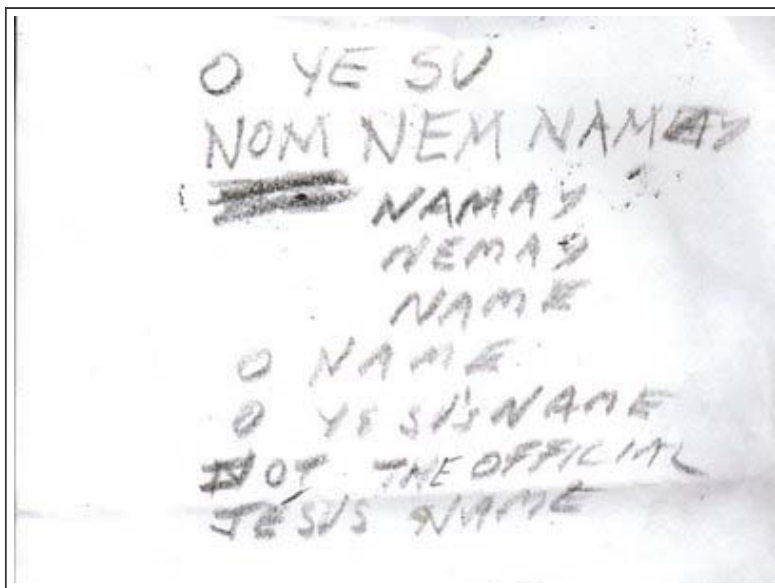 O YE SU
NOM NEM NAMAY
NAMAY
NEMAY
NAME
O NAME
O YESU'S NAME
NOT THE OFFICIAL
JESUS NAME